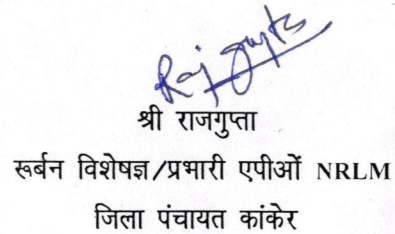 Raj Gupta
श्री राजगुप्ता
रूर्बन विशेषज्ञ/प्रभारी एपीओं NRLM
जिला पंचायत कांकेर